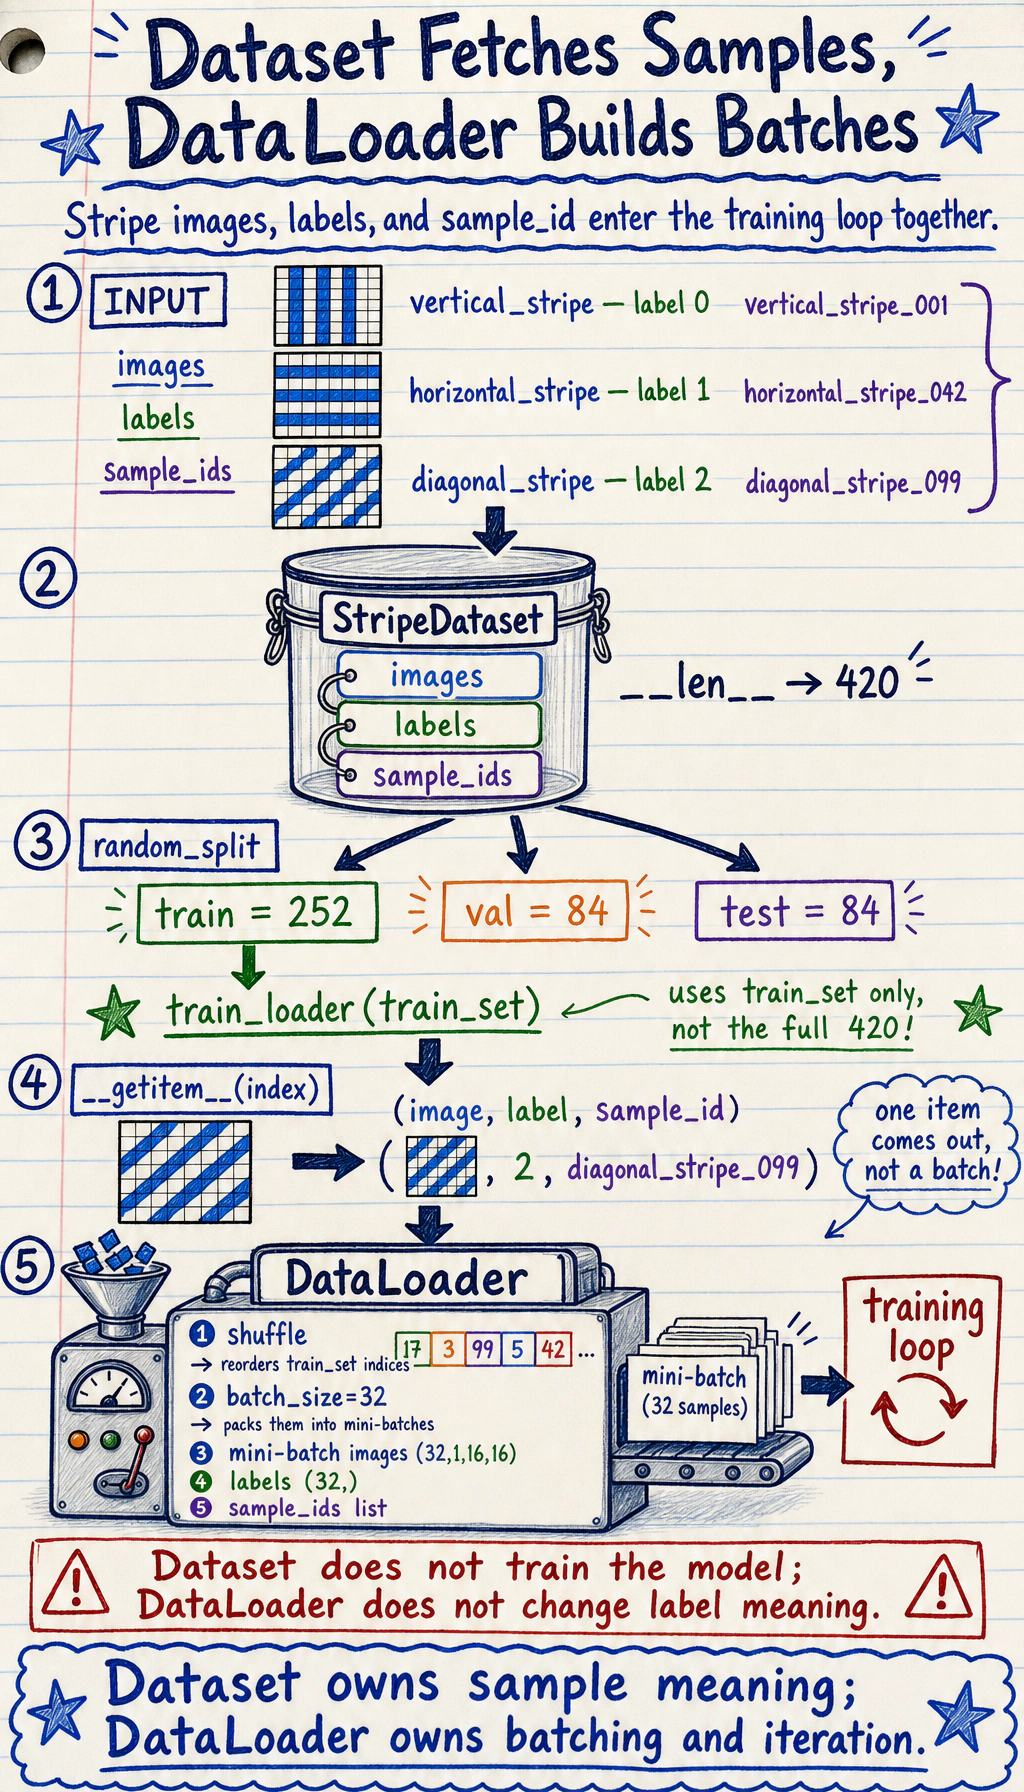 Dataset Fetches Samples,
DataLoader Builds Batches
Stripe images, labels, and sample_id enter the training loop together.
1 INPUT
images
labels
sample_ids
vertical_stripe — label 0 vertical_stripe_001
horizontal_stripe — label 1 horizontal_stripe_042
diagonal_stripe — label 2 diagonal_stripe_099
2
StripeDataset
images
labels
sample_ids
__len__ → 420
3 random_split
train = 252
val = 84
test = 84
train_loader (train_set)
uses train_set only,
not the full 420!
4 __getitem__(index)
(image, label, sample_id)
( , 2, diagonal_stripe_099)
one item
comes out,
not a batch!
5
DataLoader
1 shuffle
17 3 99 5 42 ...
→ reorders train_set indices
2 batch_size=32
→ packs them into mini-batches
3 mini-batch images (32,1,16,16)
4 labels (32,)
5 sample_ids list
mini-batch
(32 samples)
training
loop
! Dataset does not train the model; !
DataLoader does not change label meaning.
Dataset owns sample meaning;
DataLoader owns batching and iteration.